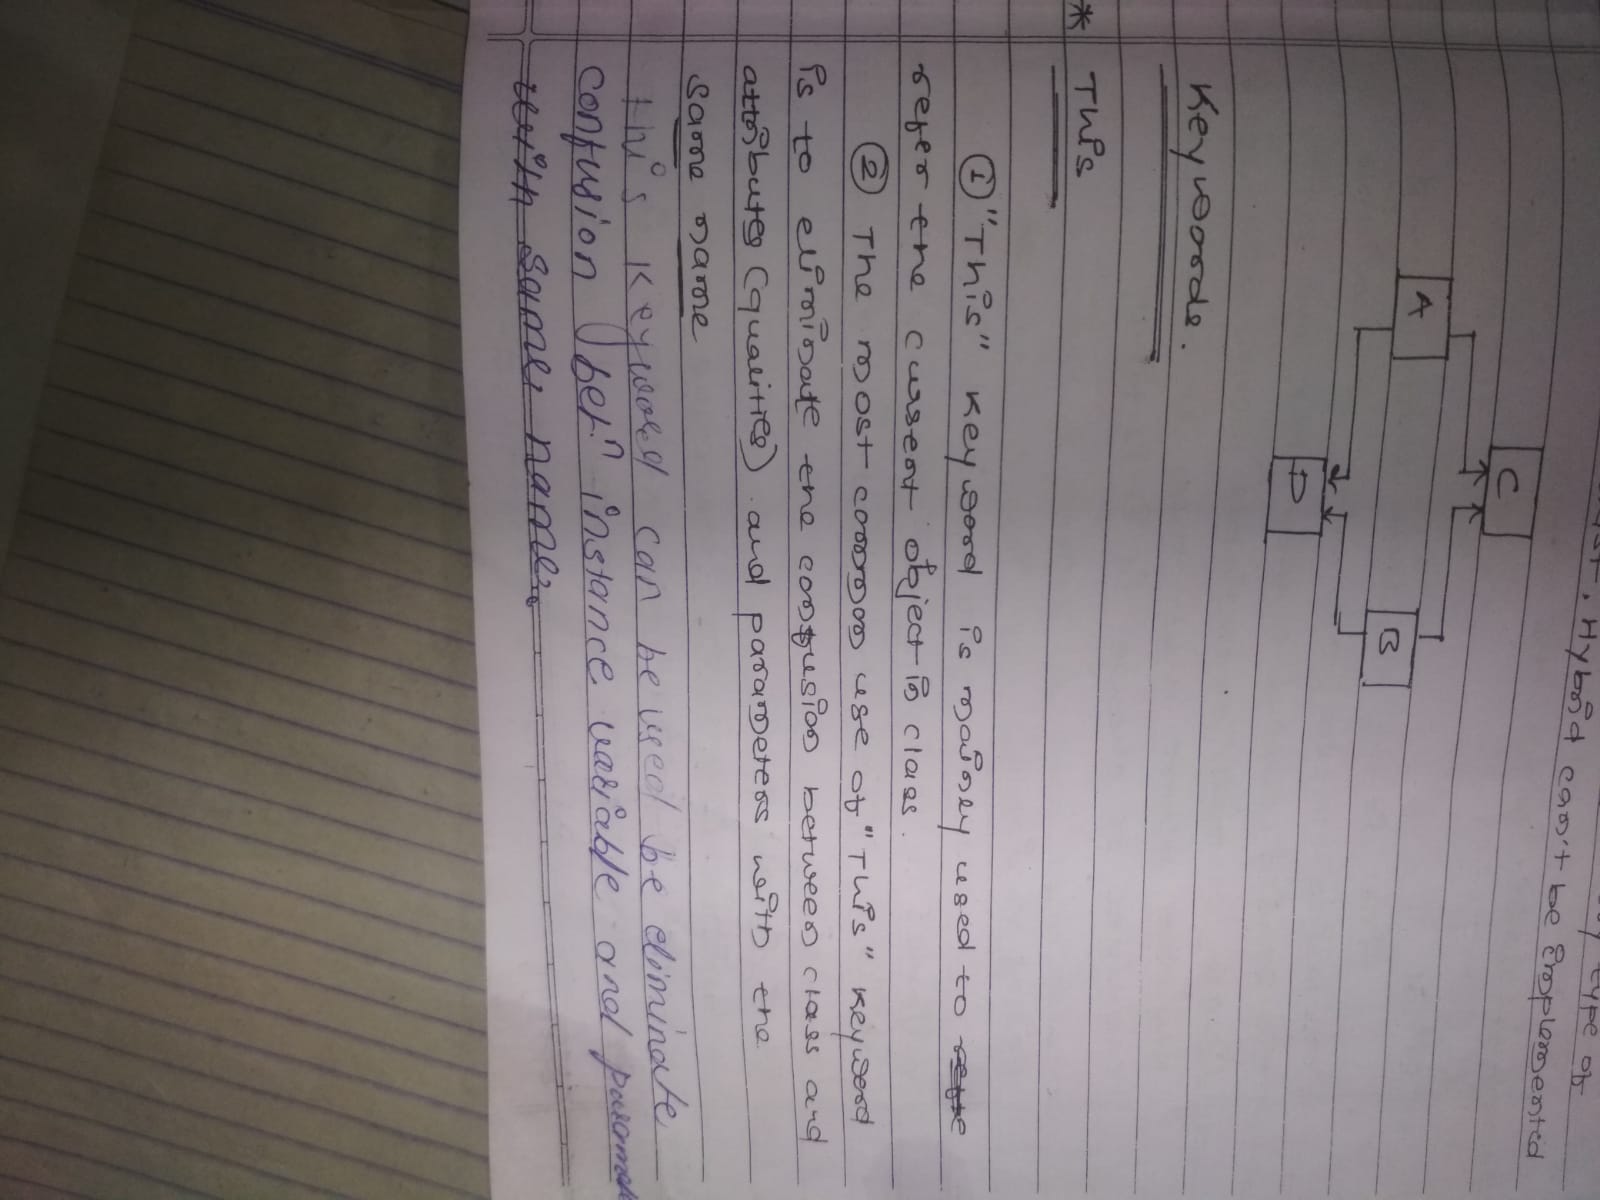 type of
. Hybrid can't be implemented
C
A
B
D
Keywords.
* This
① "This" keyword is mainly used to
refer the current object in class.
② The most common use of "This" keyword
is to eliminate the confusion between class and
attributes (qualities) and parameters with the
same name
this keyword can be used be eliminate
confusion betn instance variable and
with same name.